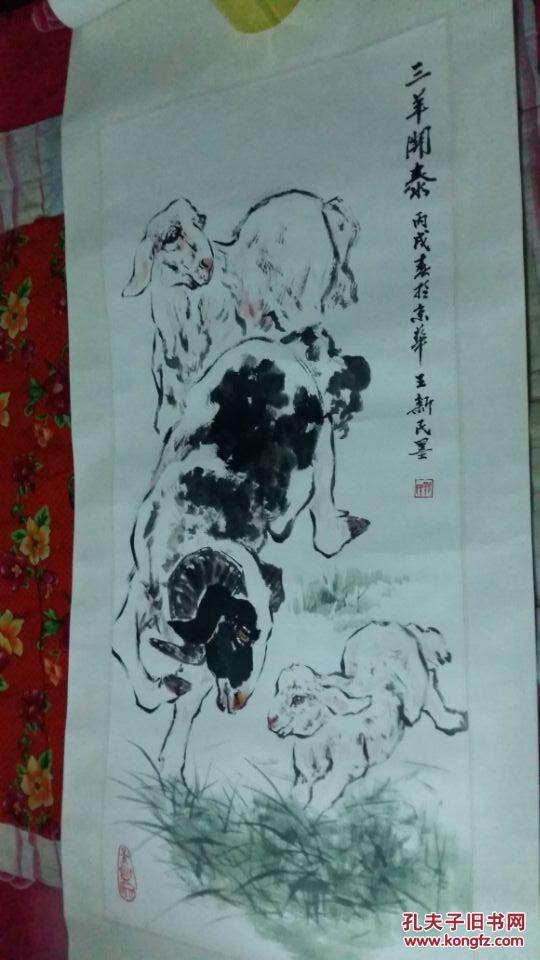 三羊開泰
丙戌春於京華 王新民墨
孔夫子旧书网
www.kongfz.com